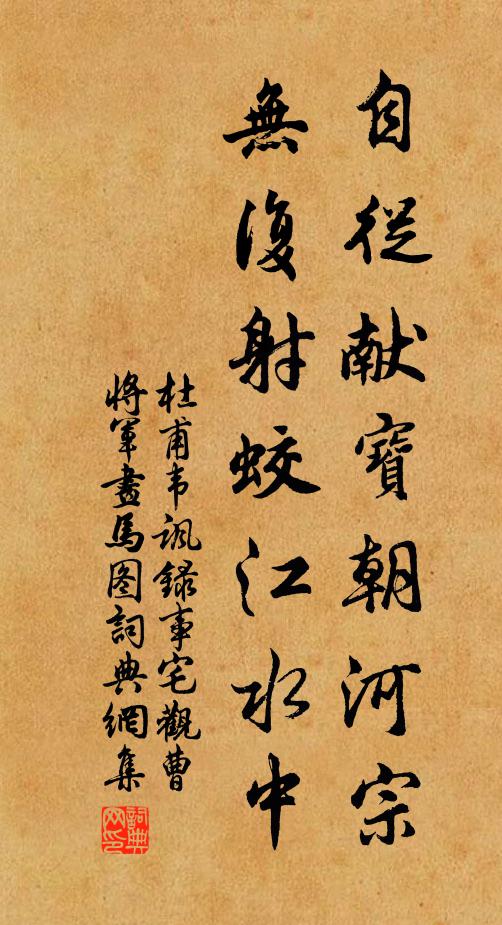 自從献寶朝河宗
無復射蛟江水中
杜甫韦諷錄事宅觀曹
將軍畫馬图詞典網集
詞典网印